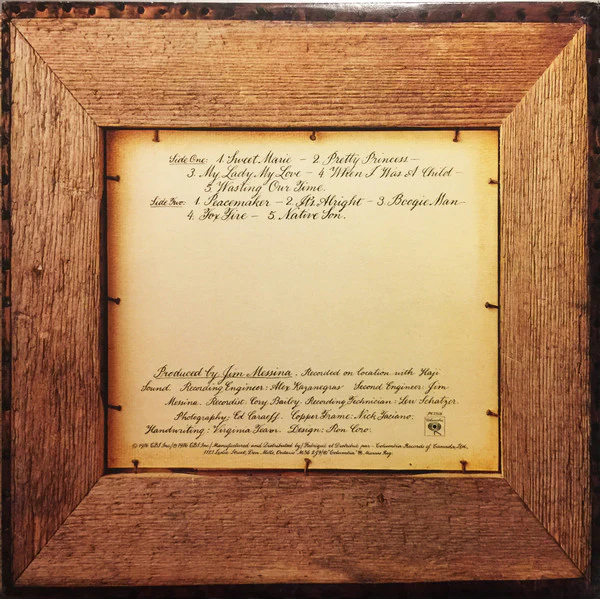 Side One: 1. Sweet Marie – 2. Pretty Princess –
3. My Lady, My Love – 4. When I Was A Child –
5. Wasting Our Time.
Side Two: 1. Peacemaker – 2. It's Alright – 3. Boogie Man –
4. Fox Fire – 5. Native Son.
Produced by Jim Messina. Recorded on location with Haji
Sound. Recording Engineer: Alex Kazanegras Second Engineer: Jim
Messina. Recordist: Cory Bailey. Recording Technician: Lew Schatzer.
Photography: Ed Caraeff Copper Frame: Nick Fasciano.
Handwriting: Virginia Team. Design: Ron Coro.
© 1976 CBS Inc./℗ 1976 CBS Inc./Manufactured and Distributed by/Fabriqué et Distribué par Columbia Records of Canada, Ltd.,
1121 Leslie Street, Don Mills, Ontario "Columbia" Marcas Reg.